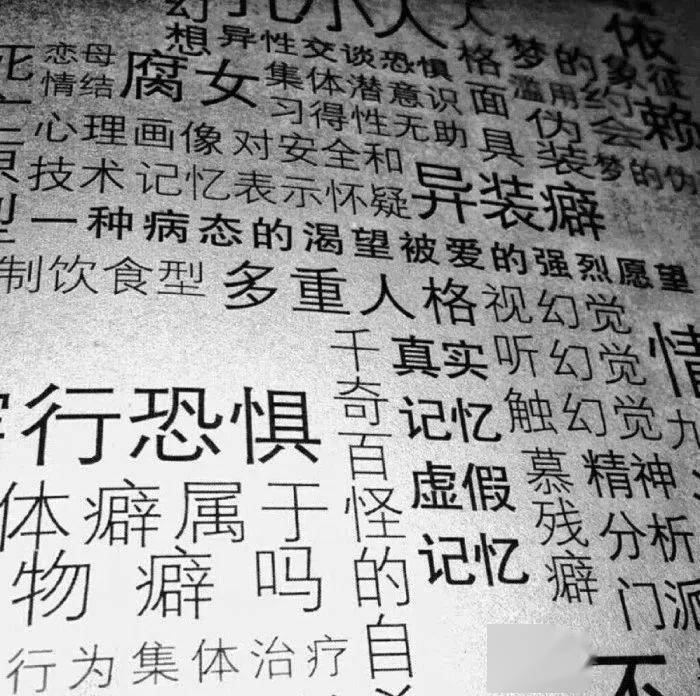 幻
想
异性交谈恐惧
格
梦的象征
依
赖
恋母
情结
腐女
集体潜意识
面
滥用
约
会
习得性无助
具
伪
装
梦的伪
心理画像
对安全和
技术
记忆表示怀疑
异装癖
一种病态的渴望被爱的强烈愿望
制饮食型
多重人格
视幻觉
千
奇
百
怪
的
自
真实
记忆
虚假
记忆
听幻觉
触幻觉
情
九
行恐惧
慕
残
癖
精神
分析
门派
体癖属于
物癖吗
行为集体治疗
不